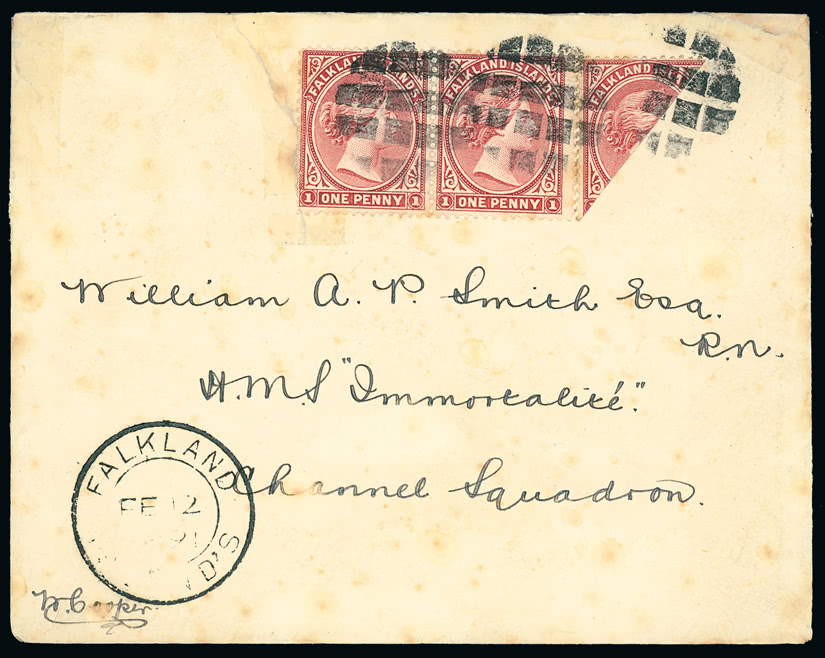 FALKLAND ISLANDS FALKLAND ISLANDS FALKLAND ISL
1 ONE PENNY 1 1 ONE PENNY 1 1
William A. P. Smith Esq.
R.N.
H.M.S "Immortalité."
Channel Squadron.
FALKLAND
FE 12
91
D'S
W. Cooper.